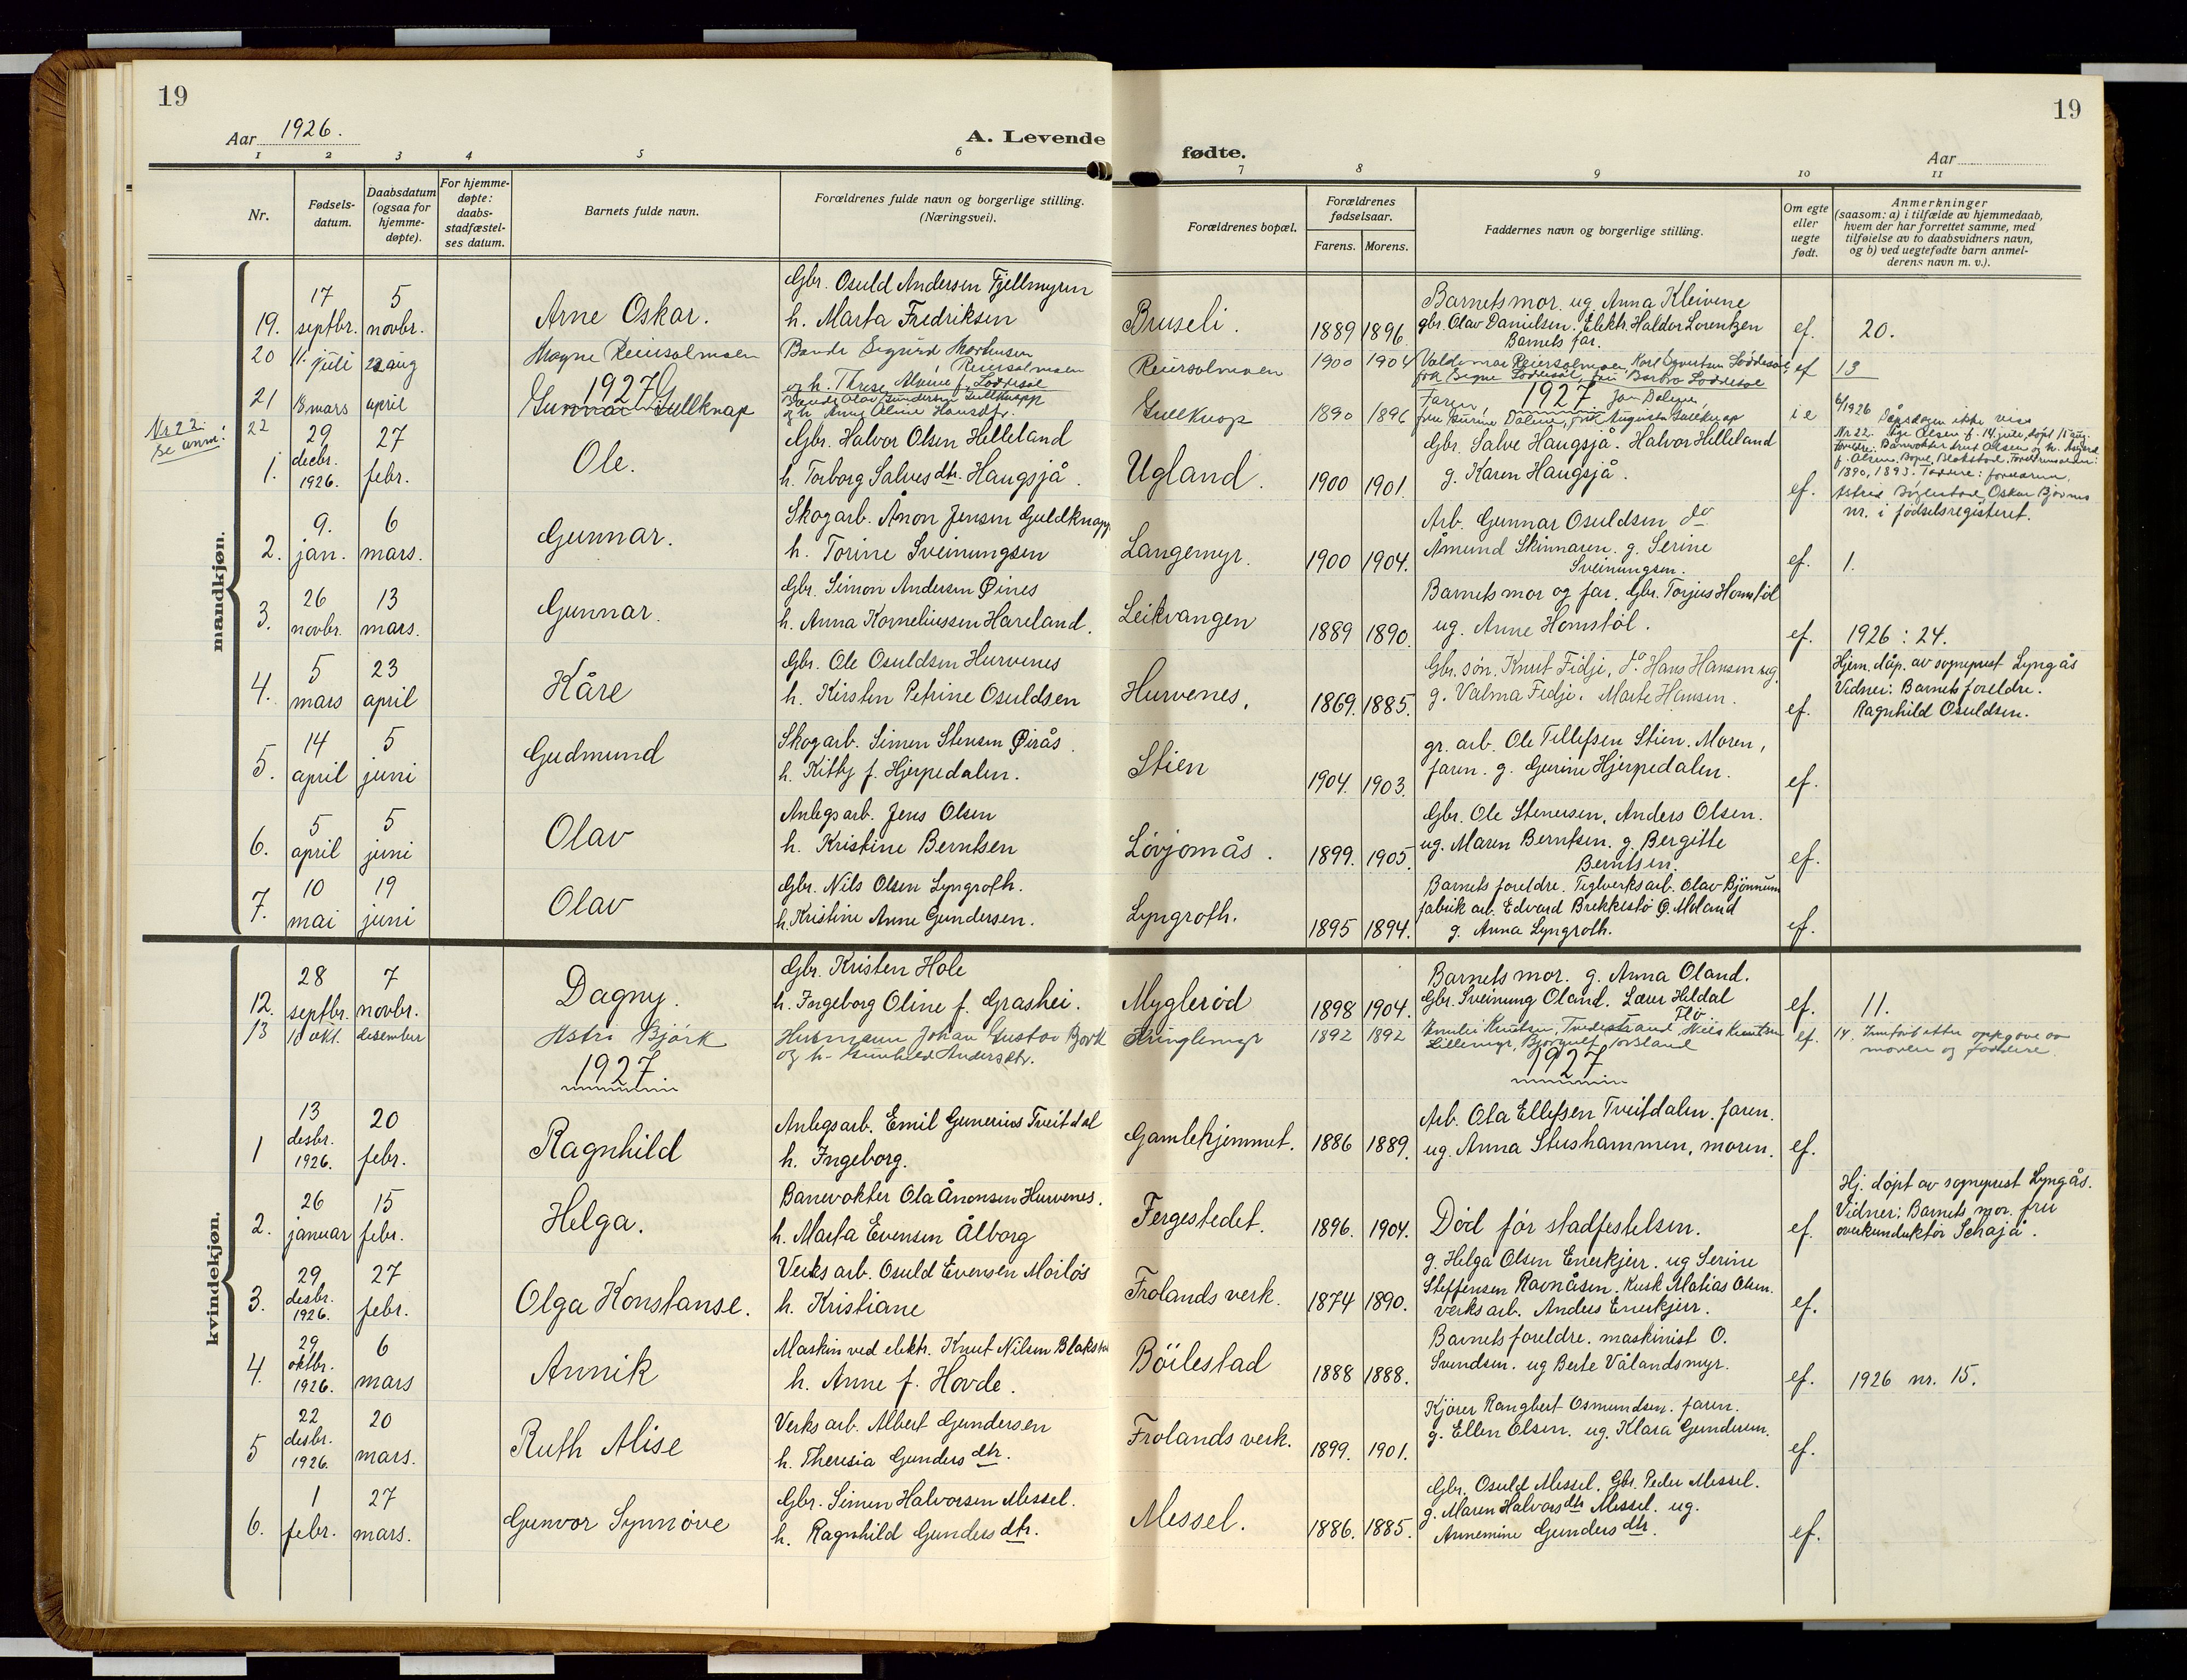 19
19
Aar 1926.
A. Levende fødte.
Aar
1 2 3 4 5 6 7 8 9 10 11
Nr.
Fødsels-datum.
Daabsdatum (ogsaa for hjemme-døpte).
For hjemme-døpte: daabs-stadfæstel-ses datum.
Barnets fulde navn.
Forældrenes fulde navn og borgerlige stilling. (Næringsvei).
Forældrenes bopæl.
Forældrenes fødselsaar.
Farens. Morens.
Faddernes navn og borgerlige stilling.
Om egte eller uegte født.
Anmerkninger
(saasom: a) i tilfælde av hjemmedaab,
hvem der har forrettet samme, med
tilføielse av to daabsvidners navn,
og b) ved uegtefødte barn anmel-
derens navn m. v.).
mandkjøn.
19. 17 septbr. 5 novbr. Arne Oskar.
Gbr. Osuld Andersen Fjellmyren
h. Marta Fredriksen
Bruseli. 1889 1896
Barnets mor. ug. Anna Kleivene
gbr. Olav Danielsen. Elektr. Haldor Lorentzen
Barnets far.
ef. 20.
20 11. juli 22 aug Magne Reiersølmoen
Bonde Sigurd Mathisen
Reiersølmoen
og h. Therese Alvine f. Løddesøl
Reiersølmoen 1900 1904
Valdemar Reiersølmoen, Karl Løddesøl,
frk Signe Løddesøl, fru Barbra Løddesøl
ef 13
1927
21 18 mars april Gunnar Gullknap
Bonde Olav Gundersen Gullknapp
og h. Anne Oline Hansdtr.
Gullknap 1890 1896
Faren, 1927 Jon Dalene,
fru Gurine Dalene, frk Augusta Gullknap
i e
6/1926 Dåpsdagen ikke viss
Nr 22.
Se anm:
22
Nr 22. Åge Olsen f. 14 juli, døpt 15 aug.
Foreldre: Banevokter Knut Olsen og h. Åsgerd
f. Olsen. Bopel Blakstad. Foreldrenes alder:
1890, 1893. Faddere: foreldrene,
Astrid Bøylestad, Oskar Bjørnes
nr. i fødselsregisteret.
1. 29 decbr. 1926. 27 febr. Ole.
Gbr. Halvor Olsen Helleland
h. Torborg Salvesdtr. Haugsjå.
Ugland. 1900 1901.
Gbr. Salve Haugsjå. Halvor Helleland
g. Karen Haugsjå.
ef.
2. 9. jan. 6 mars. Gunnar.
Skogarb. Ånon Jensen Guldknapp
h. Torine Sveinungsen
Langemyr. 1900 1904.
Arb. Gunnar Osuldsen do
Åmund Skinnaren. g. Serine
Sveinungsen.
ef. 1.
3. 26 novbr. 13 mars. Gunnar.
Gbr. Simon Andersen Øines
h. Anna Korneliussen Hareland.
Leikvangen 1889 1890.
Barnets mor og far. Gbr. Torjus Homstøl
ug. Anne Homstøl.
ef. 1926 : 24.
4. 5 mars 23 april Kåre
Gbr. Ole Osuldsen Hurvenes
h. Kirsten Petrine Osuldsen
Hurvenes, 1869. 1885.
Gbr. søn. Knut Fidje. do. Hans Hansen ug.
g. Valma Fidje. Marte Hansen.
ef.
Hjem. dåp. av sogneprest Lyngås
Vidner: Barnets foreldre.
Ragnhild Osuldsen.
5. 14 april 5 juni Gudmund
Skogarb. Simen Stensen Øirås.
h. Kitty f. Hjerpedalen.
Stien 1904. 1903.
gr. arb. Ole Tellefsen Stien. Moren,
faren. g. Gurine Hjerpedalen.
ef.
6. 5 april 5 juni Olav
Anlegsarb. Jens Olsen
h. Kristine Berntsen
Løvjomås. 1899. 1905.
Gbr. Ole Stenersen. Anders Olsen.
ug. Maren Berntsen. g. Bergitte
Berntsen.
ef.
7. 10 mai 19 juni Olav
Gbr. Nils Olsen Lyngroth.
h. Kristine Anne Gundersen.
Lyngroth. 1895 1894.
Barnets foreldre. Teglverksarb. Olav Bjønnum
fabrik arb. Edvard Brekkestø Ø. Moland
g. Anna Lyngroth.
ef.
kvindekjøn.
12. 28 septbr. 7 novbr. Dagny.
Gbr. Kristen Hole
h. Ingeborg Oline f. Grashei.
Myglerød 1898 1904.
Barnets mor. g. Anna Oland.
Gbr. Sveinung Oland. Lærer Hildal
Flø.
ef. 11.
13 18 okt. desember Astri Bjørk
Husmann Johan Gustav Bjørk
og h. Gunhild Andersdtr.
Kringlemyr 1892 1892
Emilie Knutsen, Tvedestrand, Niels Knutsen
Lillemyr, Bjorgulf
ef. 14. Innført etter oppgave av
moren og faddere.
1927
1927
1 13 desbr. 1926. 20 febr. Ragnhild
Anlegsarb. Emil Gunerius Tveitdal
h. Ingeborg.
Gamlehjemmet. 1886 1889.
Arb. Ola Ellefsen Tveitdalen. faren.
ug. Anna Stushammen, moren.
ef.
2. 26 januar 15 febr. Helga.
Banevokter Ola Ånonsen Hurvenes.
h. Marta Evensen Ålborg
Fergestedet. 1896. 1904.
Død før stadfestelsen.
ef.
Hj. døpt av sogneprest Lyngås.
Vidner: Barnets mor. fru
overkonduktør Schajå.
3. 29 desbr. 1926. 27 febr. Olga Konstanse.
Verks arb. Osuld Evensen Moiløs
h. Kristiane
Frolands verk. 1874 1890.
g. Helga Olsen Enerkjerr. ug Serine
Steffensen Ravnåsen. Kusk Matias Olsen.
verks arb. Anders Enerkjerr.
ef.
4. 29 oktbr. 1926. 6 mars Annik
Maskin ved elektr. Knut Nilsen Blakstad
h. Anne f. Hovde.
Bøilestad 1888 1888.
Barnets foreldre. maskinist O.
Svendsen. ug Berte Vålandsmyr.
ef. 1926 nr. 15.
5 22 desbr. 1926. 20 mars. Ruth Alise
Verks arb. Albert Gundersen
h. Theresia Gundersdtr.
Frolands verk. 1899. 1901.
Kjører Rangbert Osmundsen. faren.
g. Ellen Olsen. ug. Klara Gundersen.
ef.
6. 1 febr. 27 mars. Gunvor Synnøve
Gbr. Simen Halvorsen Messel.
h. Ragnhild Gundersdtr.
Messel. 1886. 1885.
Gbr. Osuld Messel. Gbr. Peder Messel.
g. Maren Halvorsdtr Messel. ug.
Annemine Gundersdtr.
ef.